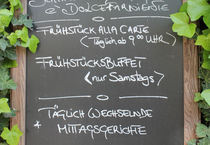 FRÜHSTÜCK ALLA CARTE
(Täglich ab 9 00 UHR)
FRÜHSTÜCKSBUFFET
(nur Samstags)
TÄGLICH WECHSELNDE
* MITTAGSGERICHTE